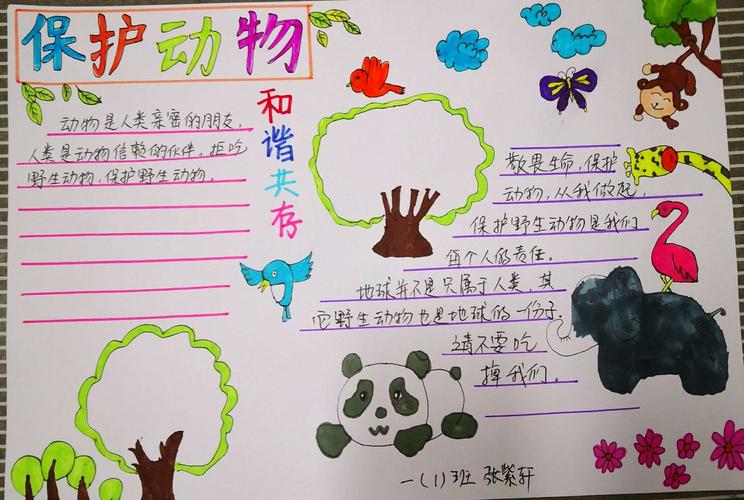 保护动物
和谐共存
动物是人类亲密的朋友,
人类是动物信赖的伙伴。拒吃
野生动物,保护野生动物。
敬畏生命,保护
动物,从我做起,
保护野生动物是我们
每个人的责任。
地球并不是只属于人类,其
它野生动物也是地球的一份子。
请不要吃
掉我们。
一(1)班 张紫轩